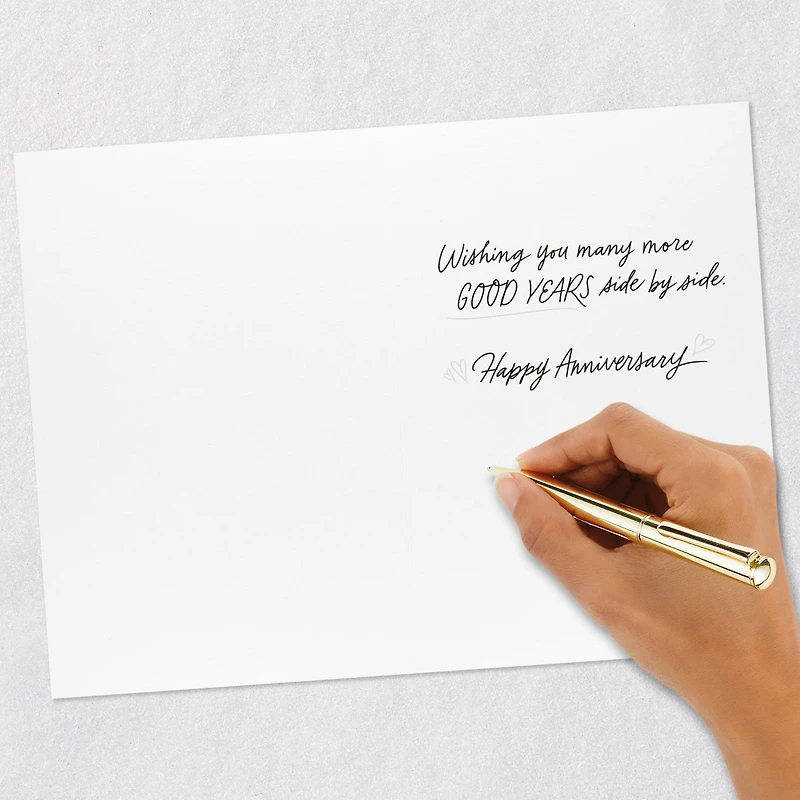 Wishing you many more
GOOD YEARS side by side.
Happy Anniversary